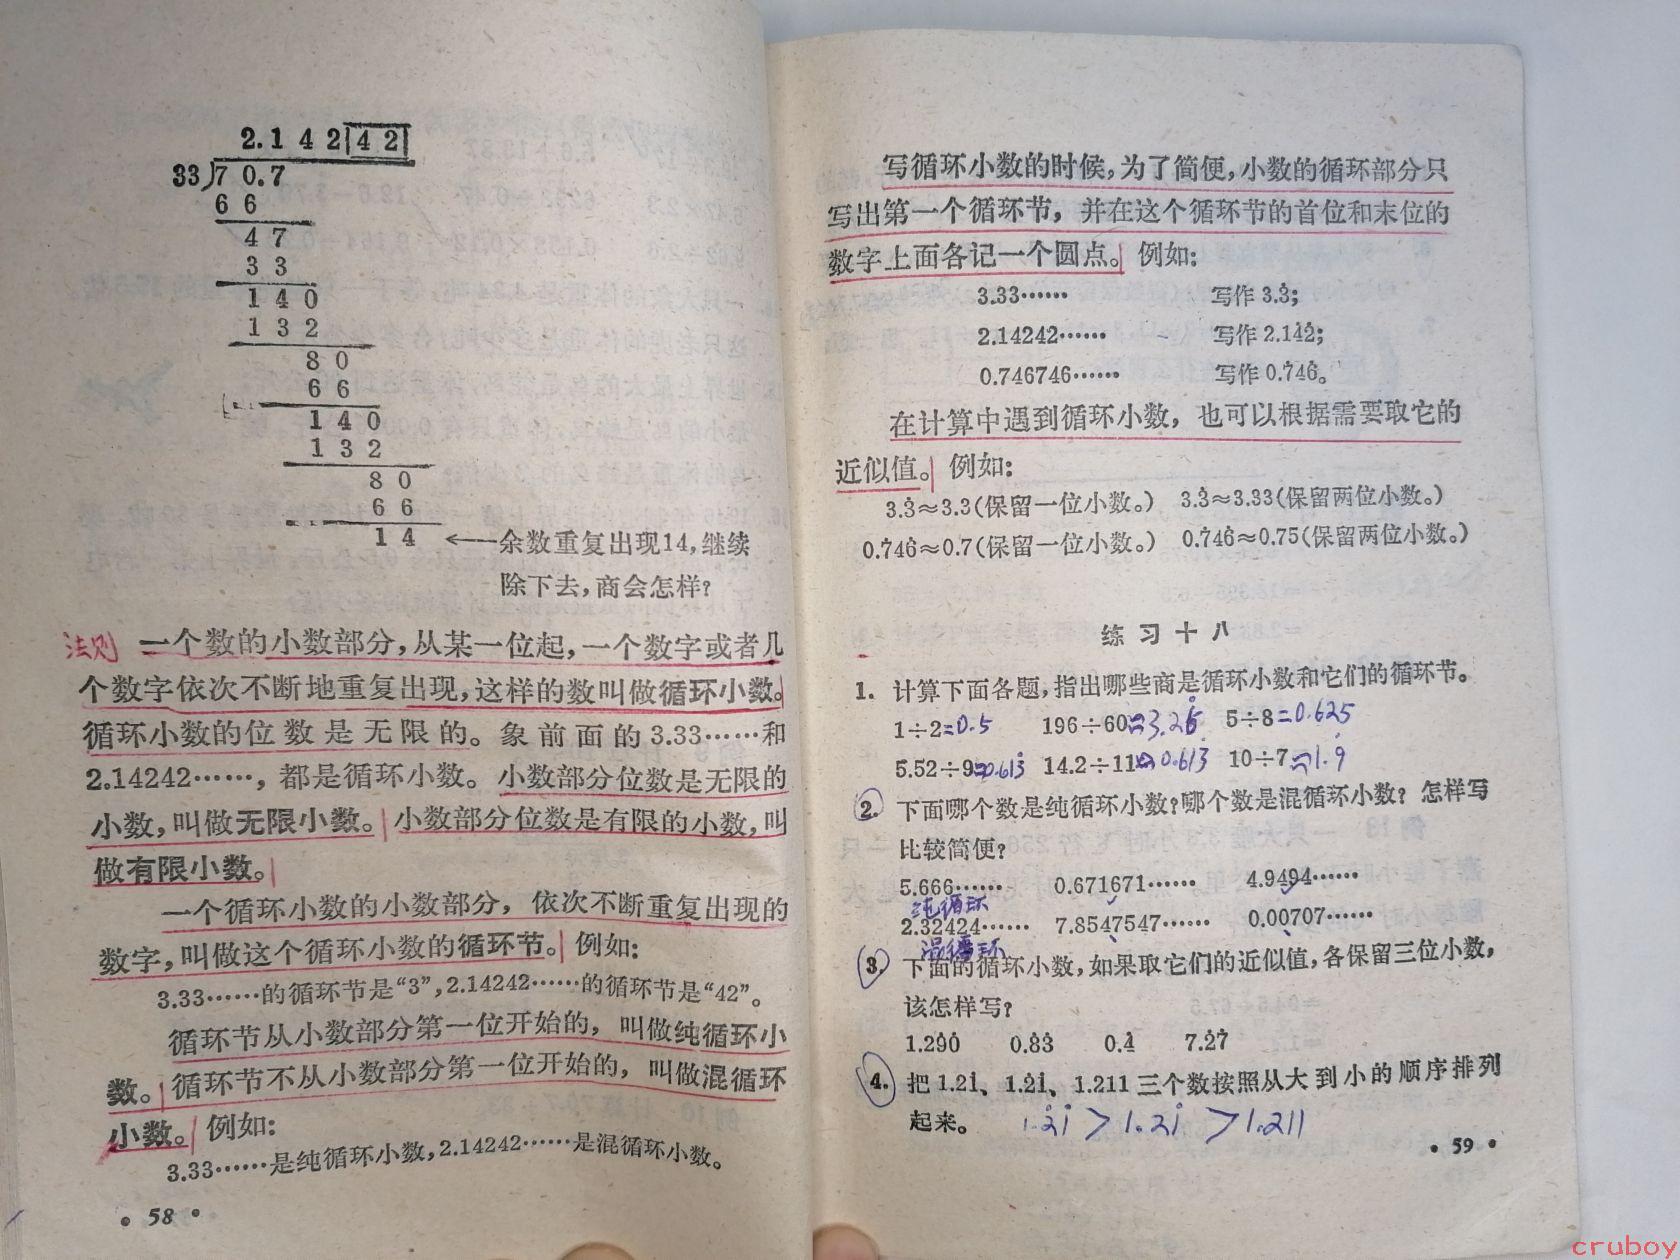 2.142 42
33)70.7
66
47
33
140
132
80
66
140
132
80
66
14 ←—余数重复出现14，继续
除下去，商会怎样？
法则 一个数的小数部分，从某一位起，一个数字或者几
个数字依次不断地重复出现，这样的数叫做循环小数。
循环小数的位数是无限的。象前面的3.33……和
2.14242……，都是循环小数。小数部分位数是无限的
小数，叫做无限小数。小数部分位数是有限的小数，叫
做有限小数。
一个循环小数的小数部分，依次不断重复出现的
数字，叫做这个循环小数的循环节。例如：
3.33……的循环节是“3”，2.14242……的循环节是“42”。
循环节从小数部分第一位开始的，叫做纯循环小
数。循环节不从小数部分第一位开始的，叫做混循环
小数。例如：
3.33……是纯循环小数，2.14242……是混循环小数。
• 58 •
写循环小数的时候，为了简便，小数的循环部分只
写出第一个循环节，并在这个循环节的首位和末位的
数字上面各记一个圆点。例如：
3.33…… 写作3.3̇；
2.14242…… 写作2.14̇2̇；
0.746746…… 写作0.7̇46̇。
在计算中遇到循环小数，也可以根据需要取它的
近似值。例如：
3.3̇≈3.3(保留一位小数。) 3.3̇≈3.33(保留两位小数。)
0.7̇46̇≈0.7(保留一位小数。) 0.7̇46̇≈0.75(保留两位小数。)
练习十八
1. 计算下面各题，指出哪些商是循环小数和它们的循环节。
1÷2=0.5 196÷60≈3.26̇ 5÷8=0.625
5.52÷9≈0.613̇ 14.2÷11≈0.613̇ 10÷7≈1.9̇
2. 下面哪个数是纯循环小数？哪个数是混循环小数？怎样写
比较简便？
5.666…… 0.671671…… 4.9494……
纯循环
2.32424…… 7.8547547…… 0.00707……
混循环
3. 下面的循环小数，如果取它们的近似值，各保留三位小数，
该怎样写？
1.29̇0̇ 0.8̇3̇ 0.4̇ 7.2̇7̇
4. 把1.21̇、1.2̇1̇、1.211三个数按照从大到小的顺序排列
起来。 1.2̇1̇>1.21̇>1.211
• 59 •
cruboy